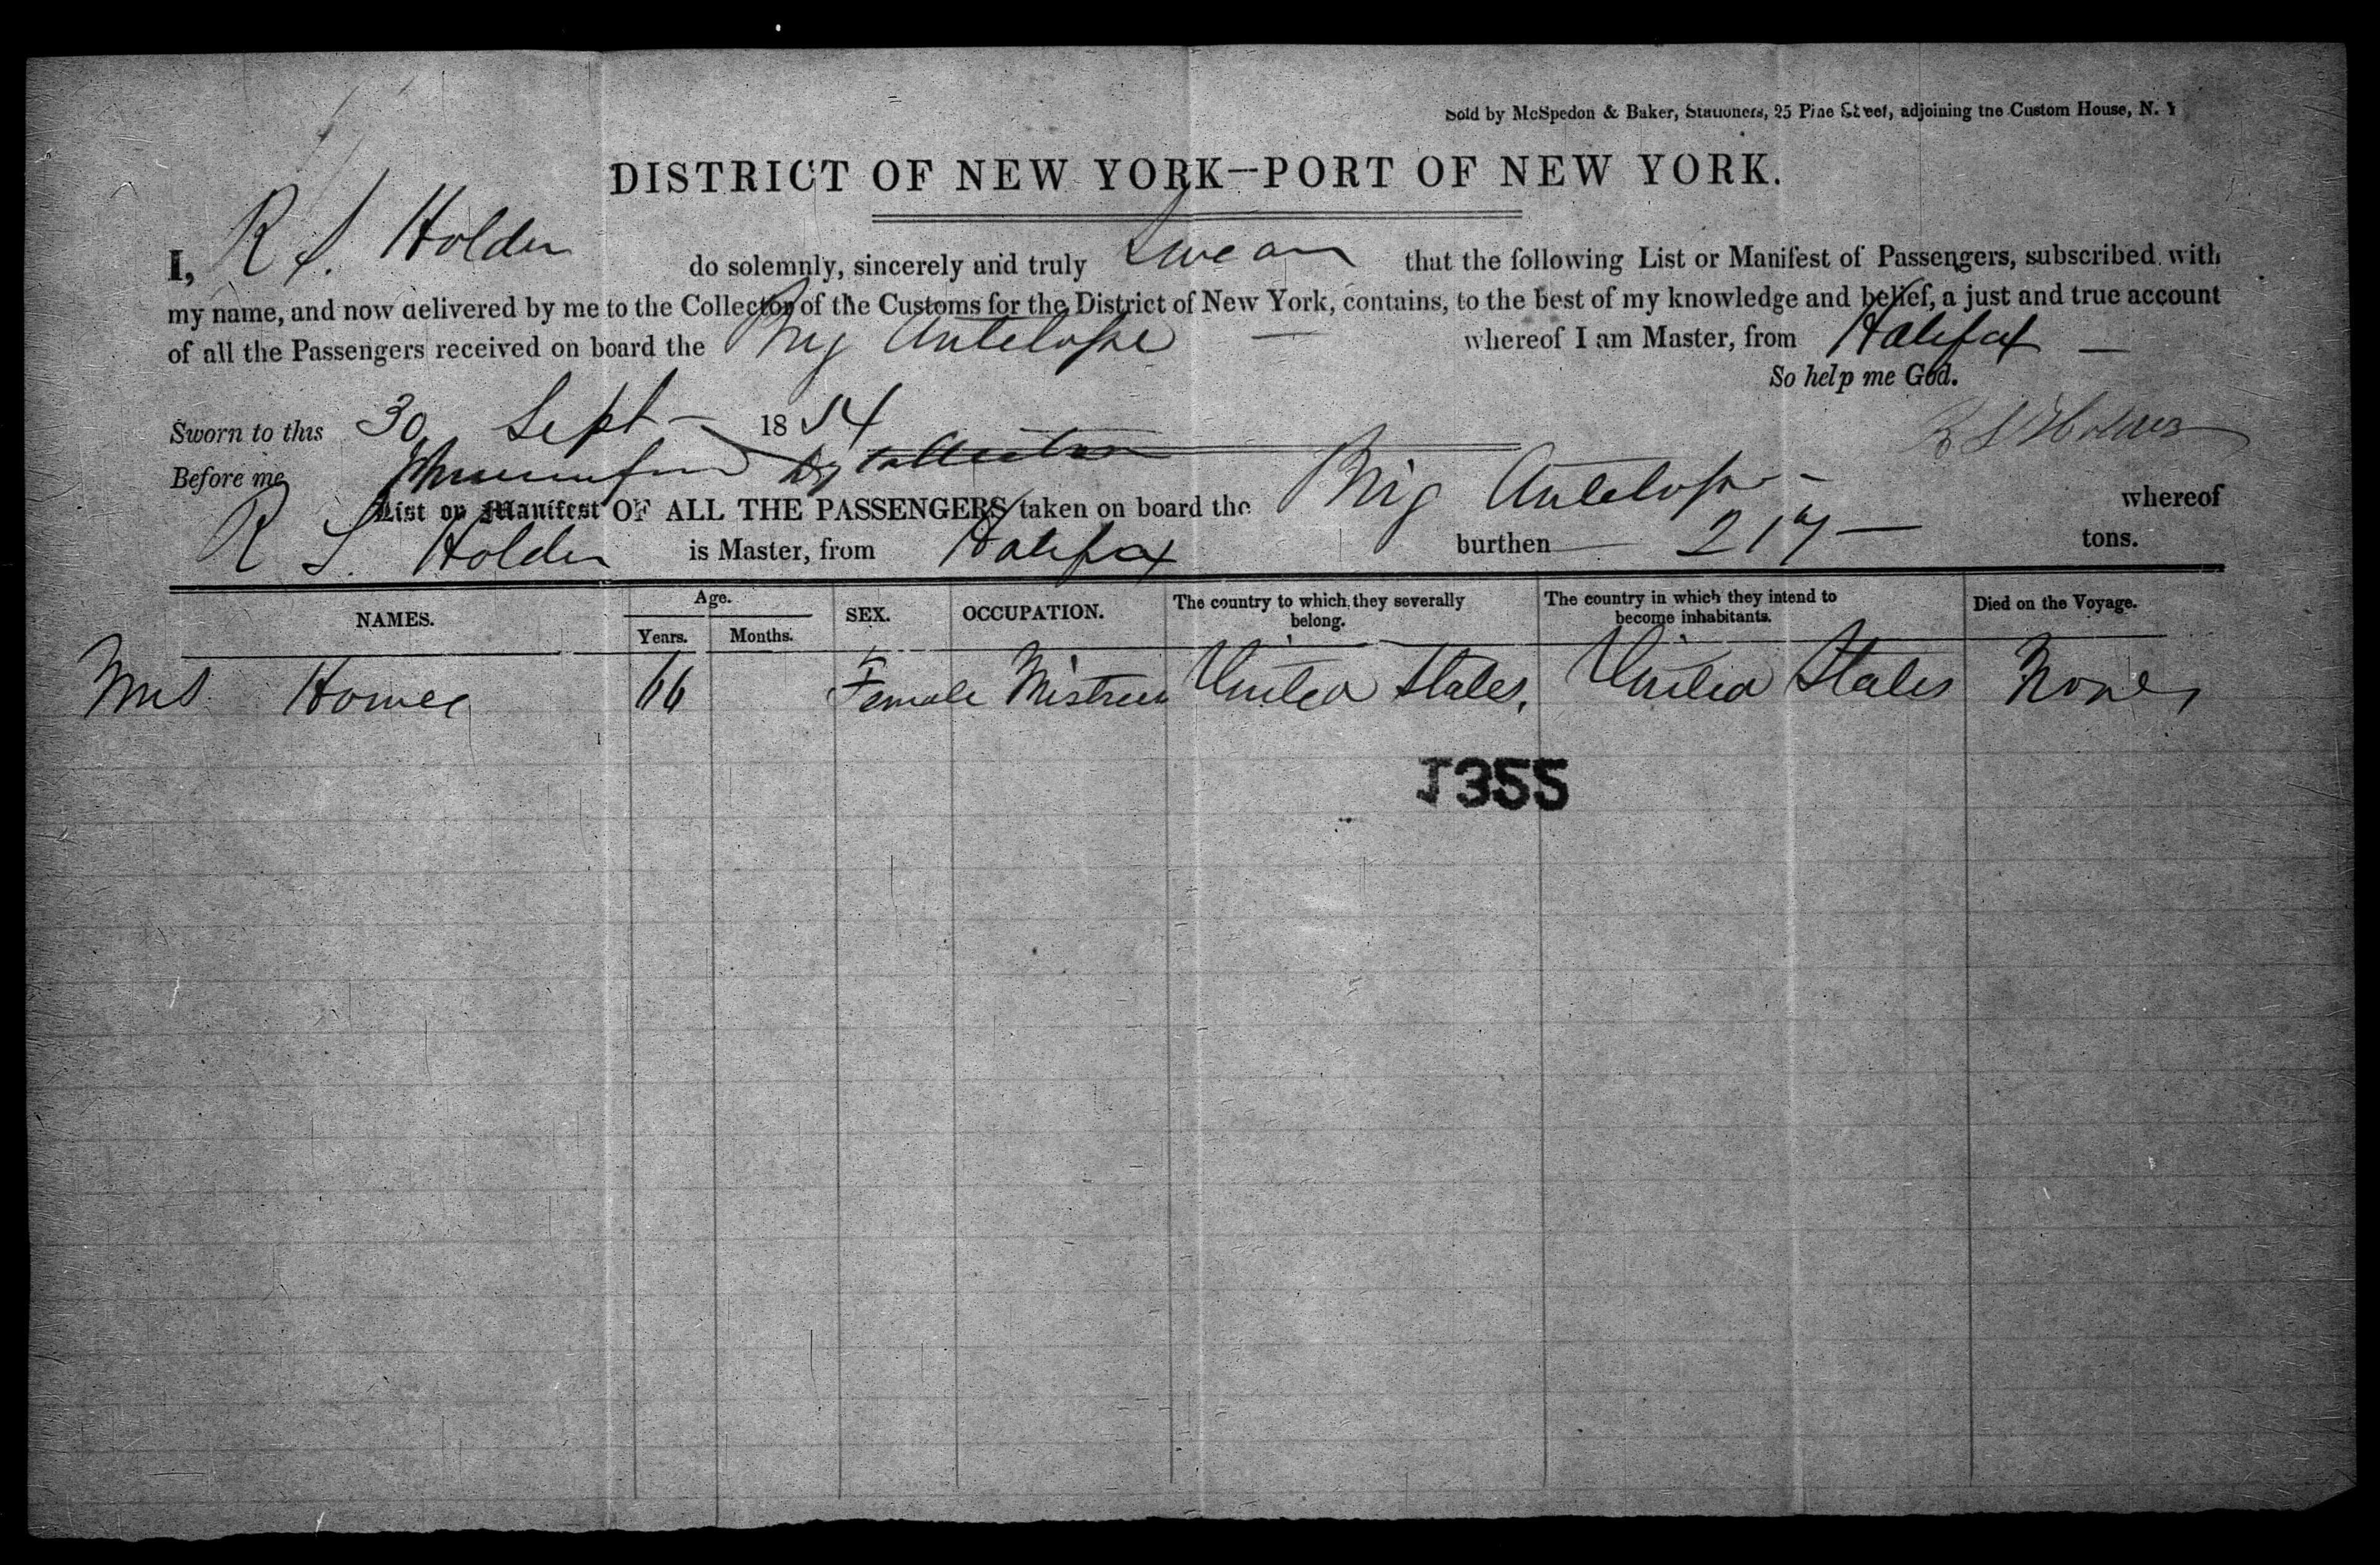 Sold by McSpedon & Baker, Stationers, 25 Pine Street, adjoining the Custom House, N. Y
DISTRICT OF NEW YORK—PORT OF NEW YORK.
I, R S. Holder do solemnly, sincerely and truly Swear that the following List or Manifest of Passengers, subscribed with
my name, and now delivered by me to the Collector of the Customs for the District of New York, contains, to the best of my knowledge and belief, a just and true account
of all the Passengers received on board the Brig Antelope — whereof I am Master, from Halifax —
So help me God.
Sworn to this 30 Sept 1854
R S Holder
Before me
List or Manifest OF ALL THE PASSENGERS taken on board the Brig Antelope whereof
R S. Holder is Master, from Halifax burthen 217 tons.
NAMES. Age. Years. Months. SEX. OCCUPATION. The country to which they severally belong. The country in which they intend to become inhabitants. Died on the Voyage.
Mrs 66 Female Mistress United States, United States None
1355